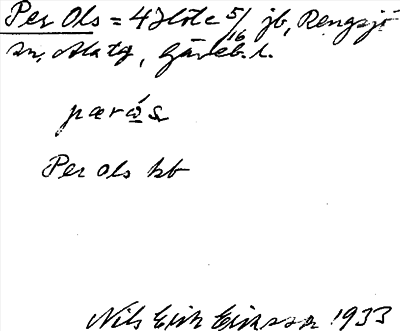 Per Ols = 4 Höle 5/16 jb, Rengsjö
sn, Ala tg, Gävleb. l.
pærós
Per ols kb
Nils Erik Eriksson 1933